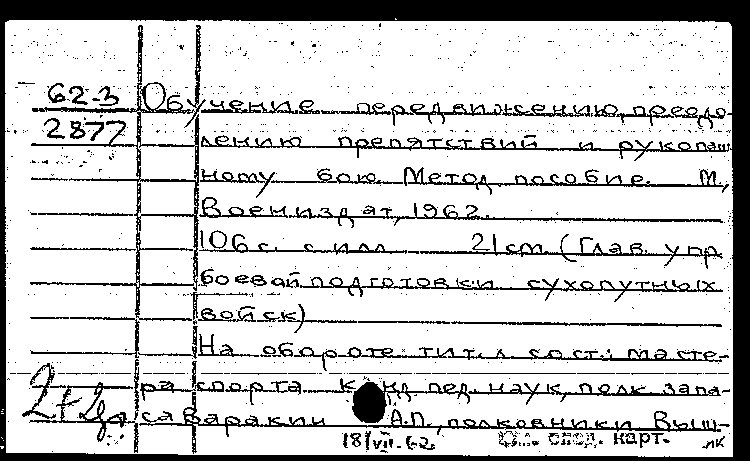 62-3 Обучение передвижению, преодо-
2877 лению препятствий и рукопаш
ному бою. Метод. пособие. М.,
Воениздат, 1962.
106 с. с илл. 21 см. (Глав. упр.
боевой подготовки сухопутных
войск)
На обороте тит. л. сост.: масте-
ра спорта канд. пед. наук, полк. запа-
са Варакин А.П., полковники Выш-
18/VII-62 см. след. карт.